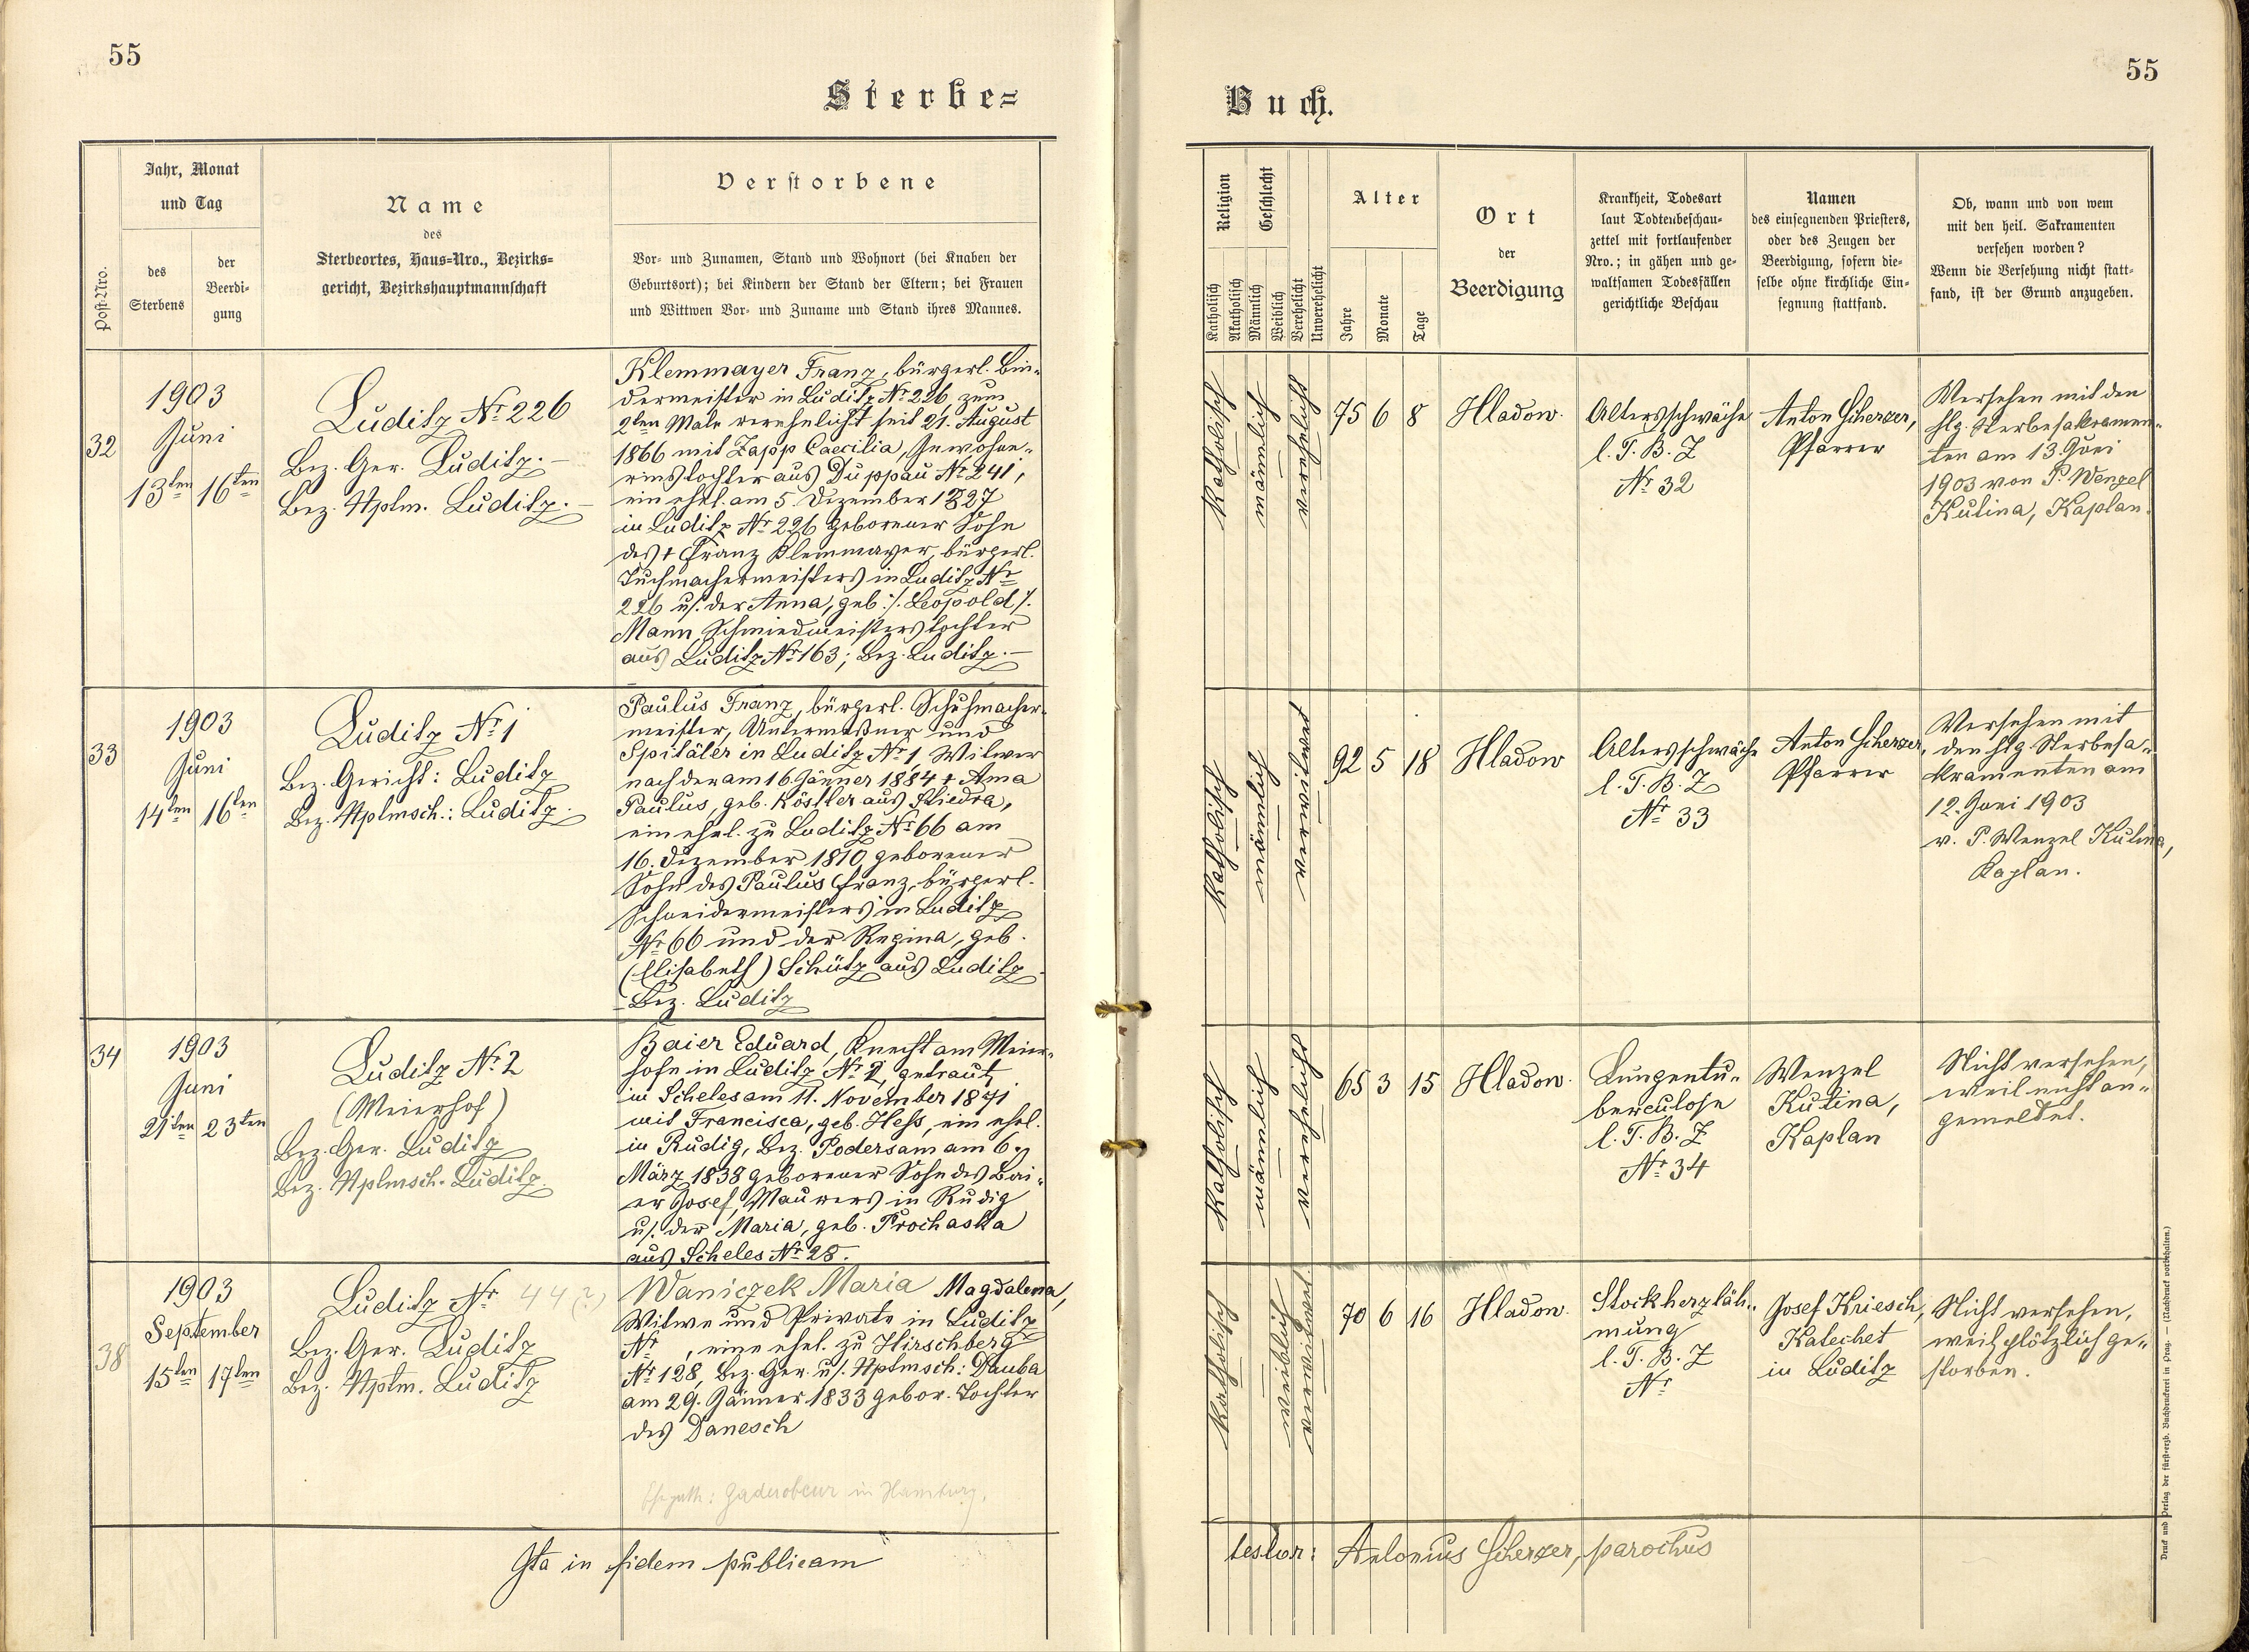 55
Sterbe=
Post-Nro.
Jahr, Monat
und Tag
des
Sterbens
der
Beerdi-
gung
Name
des
Sterbeortes, Haus-Nro., Bezirks-
gericht, Bezirkshauptmannschaft
Verstorbene
Vor- und Zunamen, Stand und Wohnort (bei Knaben der
Geburtsort); bei Kindern der Stand der Eltern; bei Frauen
und Wittwen Vor- und Zuname und Stand ihres Mannes.
32
1903
Juni
13ten 16ten
Luditz Nr. 226
Bez. Ger. Luditz.—
Bez. Hptm. Luditz.—
Klemmayer Franz, bürgerl. Bin-
dermeister in Luditz Nr. 226, zum
2ten Male verehelicht seit 21. August
1866 mit Zapp Caecilia, Inwohne-
rinstochter aus Duppau Nr. 241,
ein ehel. am 5. Dezember 1827
in Luditz Nr. 226 geborener Sohn
des † Franz Klemmayer, bürgerl.
Tuchmachermeisters in Luditz Nr.
226 u/. der Anna, geb. /. Leopold /.
Mann, Schmiedmeisterstochter
aus Luditz Nr. 163; Bez. Luditz.—
33
1903
Juni
14ten 16ten
Luditz Nr. 1
Bez. Gericht: Luditz
Bez. Hptmsch.: Luditz.
Paulus Franz, bürgerl. Schuhmacher-
meister, Untermeßner und
Spitäler in Luditz Nr. 1, Witwer
nach der am 16. Jänner 1884 † Anna
Paulus, geb. Köstler aus Stiedra,
ein ehel. zu Luditz Nr. 66 am
16. Dezember 1810 geborener
Sohn des Paulus Franz, bürgerl.
Schneidermeisters in Luditz
Nr. 66 und der Regina, geb.
(Elisabeth) Schütz aus Luditz
Bez. Luditz
34
1903
Juni
21ten 23ten
Luditz Nr. 2
(Meierhof)
Bez. Ger. Luditz
Bez. Hptmsch. Luditz.
Baier Eduard, Knecht am Meier-
hofe in Luditz Nr. 2, getraut
in Scheles am 11. November 1871
mit Francisca, geb. Hess, ein ehel.
in Rudig, Bez. Podersam am 6.
März 1838 geborener Sohn des Bai-
er Josef, Maurers in Rudig
u/. der Maria, geb. Prochaska
aus Scheles Nr. 28.
38
1903
September
15ten 17ten
Luditz Nr. 44 (?)
Bez. Ger. Luditz
Bez. Hptm. Luditz
Waniczek Maria Magdalena,
Witwe und Private in Luditz
Nr. , eine ehel. zu Hirschberg
Nr. 128, Bez. Ger. u/. Hptmsch: Dauba
am 29. Jänner 1833 gebor. Tochter
des Danesch
in Hamburg.
Ita in fidem publicam
55
Buch.
Religion
Katholisch
Akatholisch
Geschlecht
Männlich
Weiblich
Verehelicht
Unverehelicht
Alter
Jahre
Monate
Tage
Ort
der
Beerdigung
Krankheit, Todesart
laut Todtenbeschau-
zettel mit fortlaufender
Nro.; in gähen und ge-
waltsamen Todesfällen
gerichtliche Beschau
Namen
des einsegnenden Priesters,
oder des Zeugen der
Beerdigung, sofern die-
selbe ohne kirchliche Ein-
segnung stattfand.
Ob, wann und von wem
mit den heil. Sakramenten
versehen worden?
Wenn die Versehung nicht statt-
fand, ist der Grund anzugeben.
Katholisch
männlich
verehelicht
75 6 8
Hladow.
Altersschwäche
l. T. B. Z
Nr. 32
Anton Scherzer,
Pfarrer
Versehen mit den
hlg. Sterbesakramen-
ten am 13. Juni
1903 von P. Wenzel
Kutina, Kaplan.
Katholisch
männlich
verwitwet
92 5 18
Hladow
Altersschwäche
l. T. B. Z
Nr. 33
Anton Scherzer,
Pfarrer
Versehen mit
den hlg. Sterbesa-
kramenten am
12. Juni 1903
v. P. Wenzel Kutina,
Kaplan.
Katholisch
männlich
verehelicht
65 3 15
Hladow.
Lungentu-
berculose
l. T. B. Z
Nr. 34
Wenzel
Kutina,
Kaplan
Nicht versehen,
weil nicht an-
gemeldet.
Katholisch
weiblich
verwitwet
70 6 16
Hladow.
Stockherzläh-
mung
l. T. B. Z
Nr.
Josef Kriesch,
Katechet
in Luditz
Nicht versehen,
weil plötzlich ge-
storben.
testor: Antonius Scherzer, parochus
Druck und Verlag der fürst-erzb. Buchdruckerei in Prag. — (Nachdruck vorbehalten.)